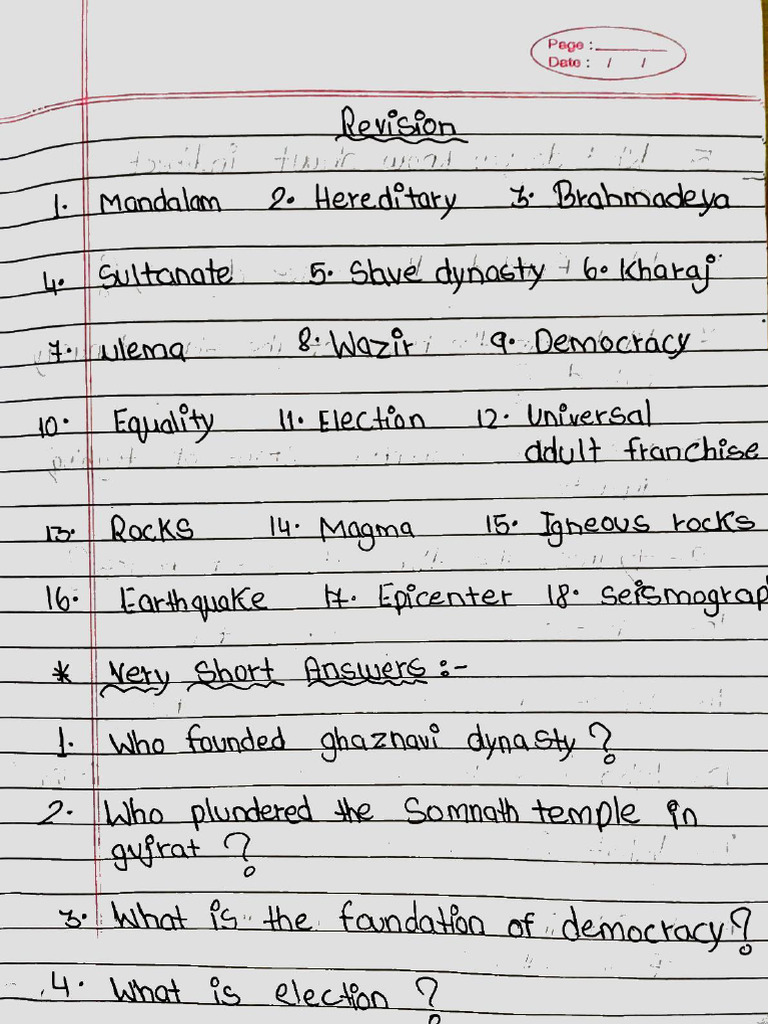 Page :
Date : / /
Revision
1. Mandalam 2. Hereditary 3. Brahmadeya
4. Sultanate 5. Slave dynasty 6. Kharaj
7. ulema 8. Wazir 9. Democracy
10. Equality 11. Election 12. Universal
adult franchise
13. Rocks 14. Magma 15. Igneous rocks
16. Earthquake 17. Epicenter 18. seismograp
* Very Short Answers :-
1. Who founded ghaznavi dynasty ?
2. Who plundered the Somnath temple in
gujrat ?
3. What is the foundation of democracy?
4. What is election ?